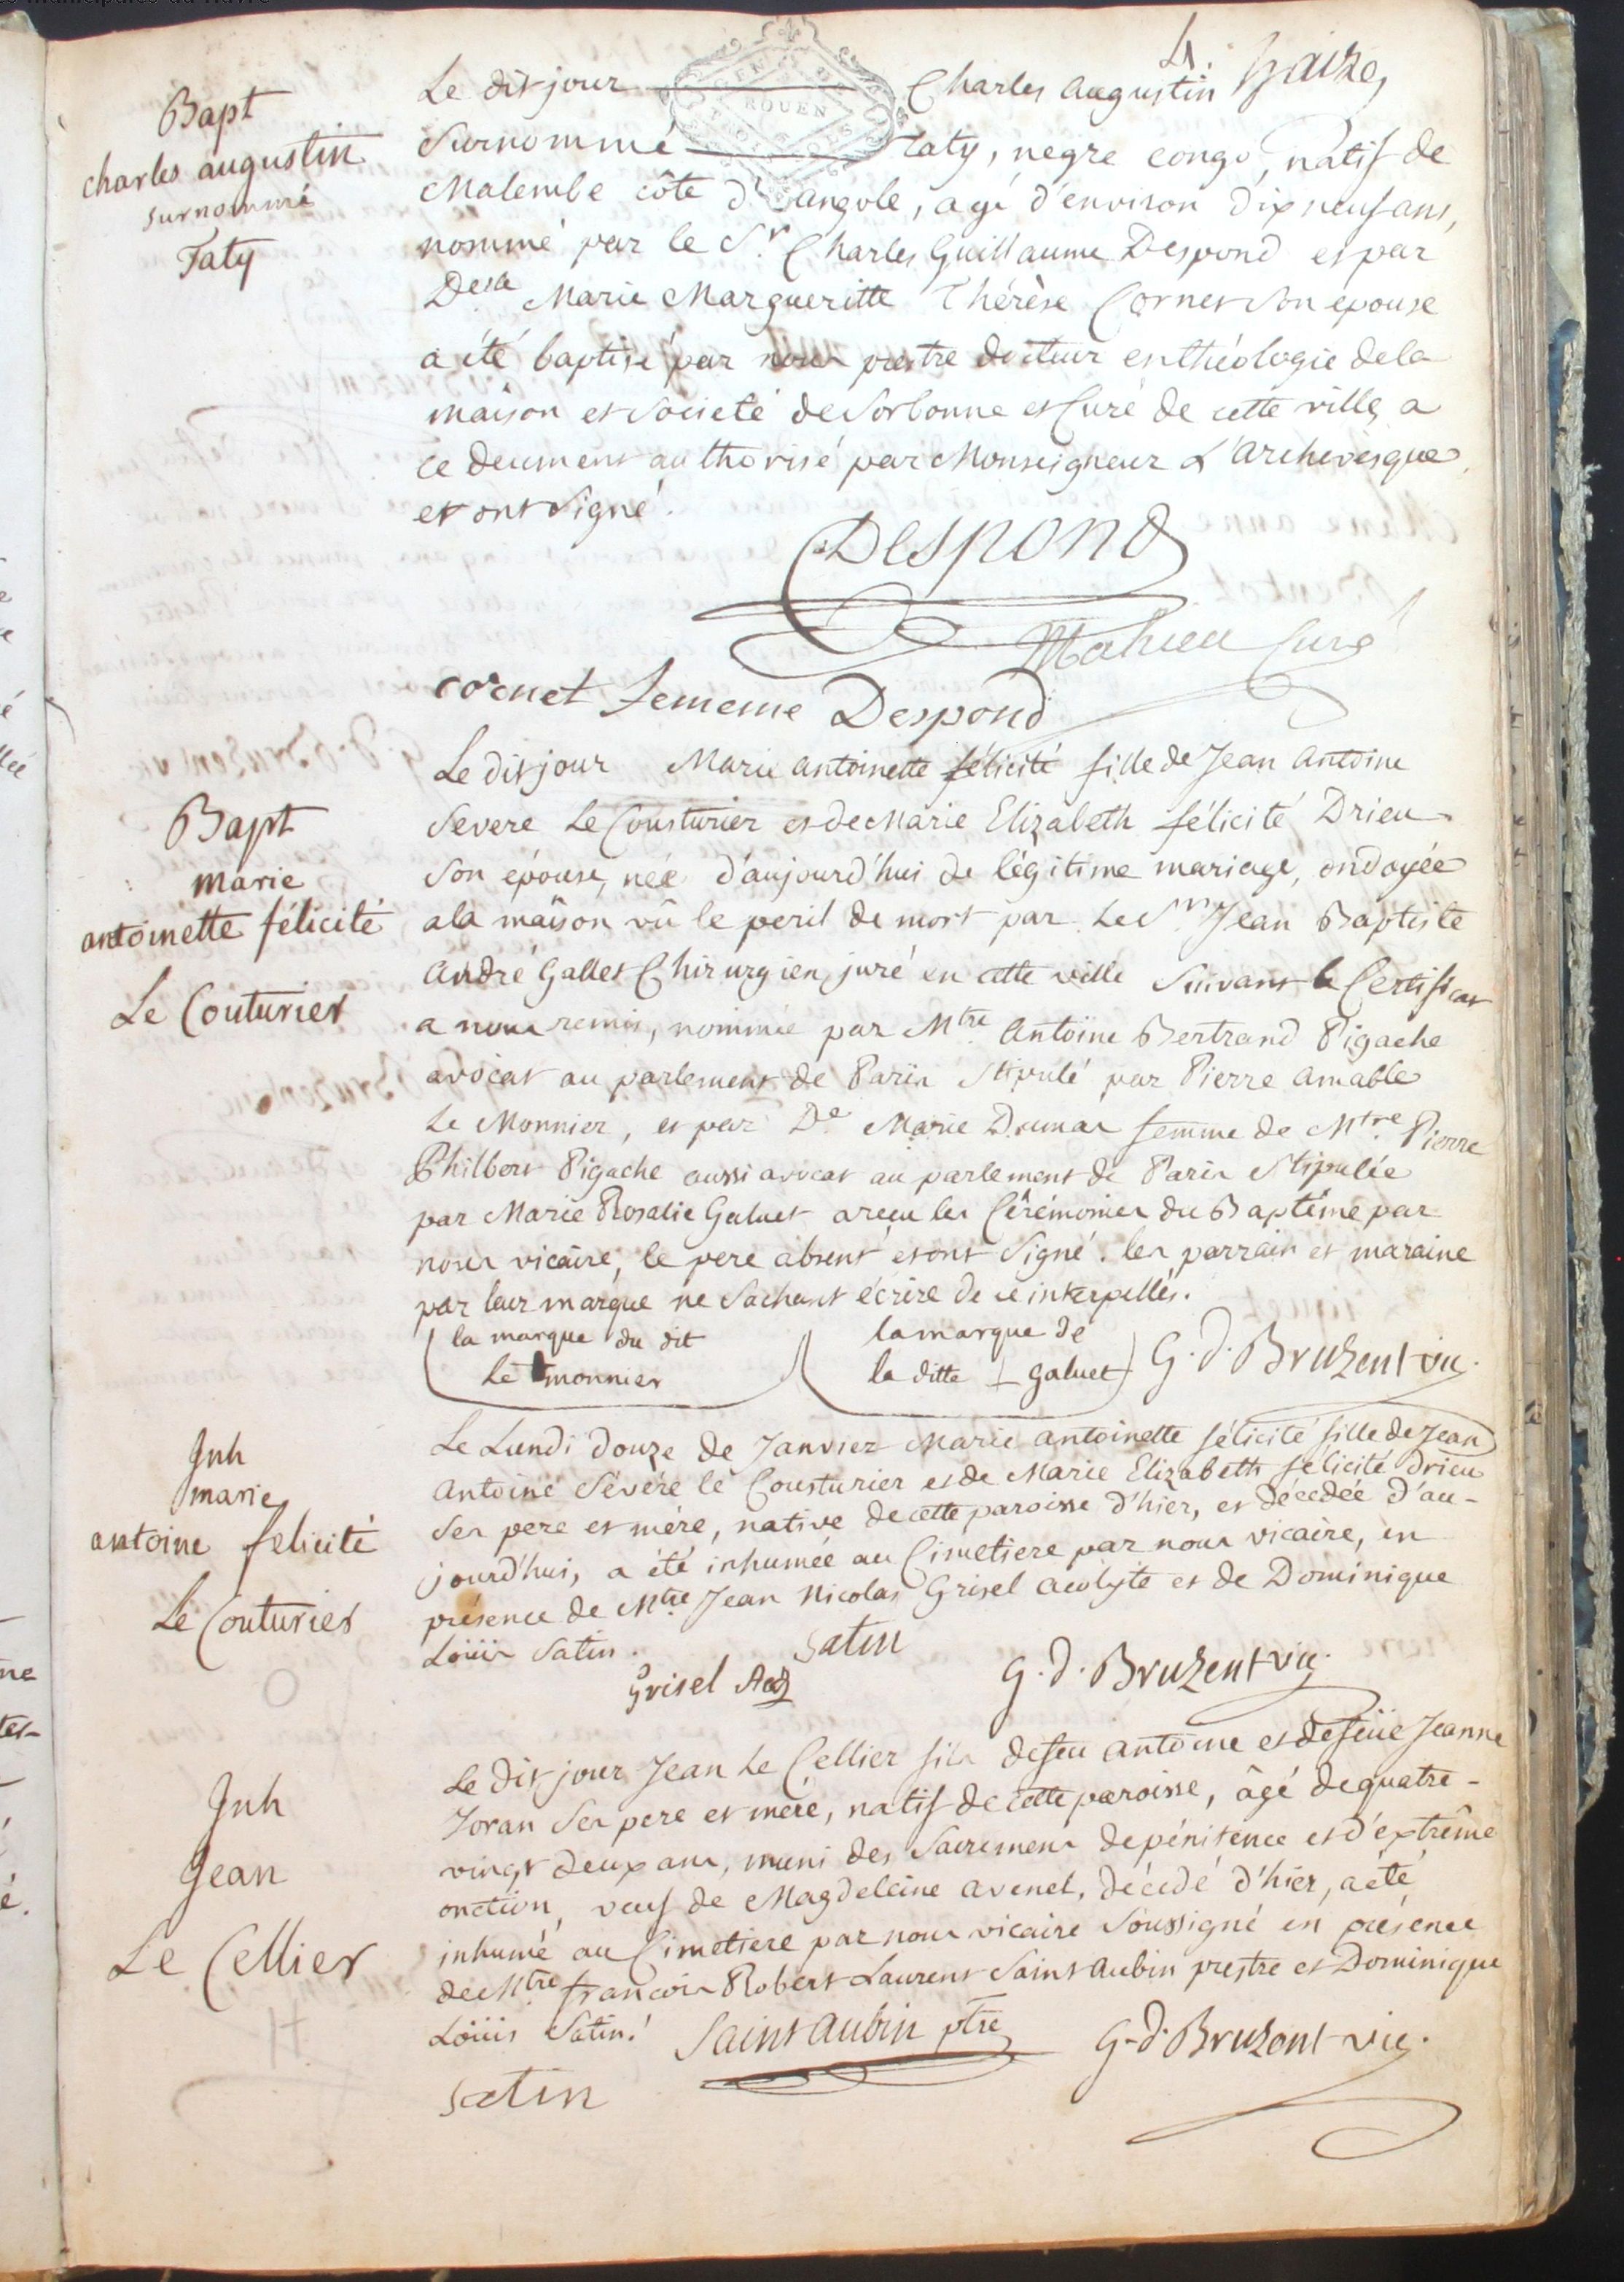 Bapt
charles augustin
surnommé
Taty
4.
Le dit jour Charles Augustin
GEN ROUEN
Surnommé Taty, negre congo, natif de
Malembe côte d'angole, agé d'environ dix neuf ans,
nommé par le Sr. Charles Guillaume Despond et par
Delle Marie Margueritte Thérèse Cornet Son épouse
a été baptisé par nous prestre docteur en théologie dela
maison et Societé de Sorbonne et Curé de cette ville, a
ce deument authorisé par Monseigneur L'archevesque,
et ont Signé.
Despond
Mahieu Curé
cornet femme Despond
Bapt
marie
antoinette félicité
Le Couturier
Le dit jour Marie antoinette félicité fille de Jean Antoine
Severe Le Cousturier et de Marie Elizabeth félicité Drieu
Son épouse, née d'aujourd'hui de légitime mariage, ondoyée
a la maison vû le peril de mort par Le Sr. Jean Baptiste
André Gallet Chirurgien juré en cette ville Suivant le Certificat
a nous remis, nommée par Mtre Antoine Bertrand Pigache
avocat au parlement de Paris Stipulé par Pierre amable
Le Monnier, et par De Marie Dumas femme de Mtre Pierre
Philbert Pigache aussi avocat au parlement de Paris Stipulée
par Marie Rosalie Galuet a reçu les Cérémonies du Baptême par
nous vicaire, le pere absent et ont Signé. les parrain et maraine
par leur marque ne Sachant écrire de ce interpellés.
la marque du dit
Le monnier
la marque de
la ditte + galuet
G. d. Bruzent vic.
Inh
marie
antoine felicité
Le Couturier
Le Lundi douze de Janvier Marie antoinette félicité fille de Jean
Antoine Sévére le Cousturier et de Marie Elizabeth félicité Drieu
Ses pere et mére, native de cette paroisse d'hier, et décedée d'au-
jourd'hui, a été inhumée au Cimetiere par nous vicaire, en
présence de Mtre Jean Nicolas Grisel acolyte et de Dominique
Loüis Satin.
satin
Grisel Aco
G. d. Bruzent vic.
Inh
Jean
Le Cellier
Le dit jour Jean Le Cellier fils de feu Antoine et de feüe Jeanne
Joran Ses pere et mére, natif de cette paroisse, âgé de quatre-
vingt deux ans, muni des Sacremens de pénitence et d'extrême
onction, veuf de Magdeleine Avenel, décédé d'hier, a été
inhumé au Cimetiere par nous vicaire Soussigné en présence
de Mtre francois Robert Laurent Saint Aubin prestre et Dominique
Loüis Satin.
Saint Aubin ptre
G. d. Bruzent vic.
satin